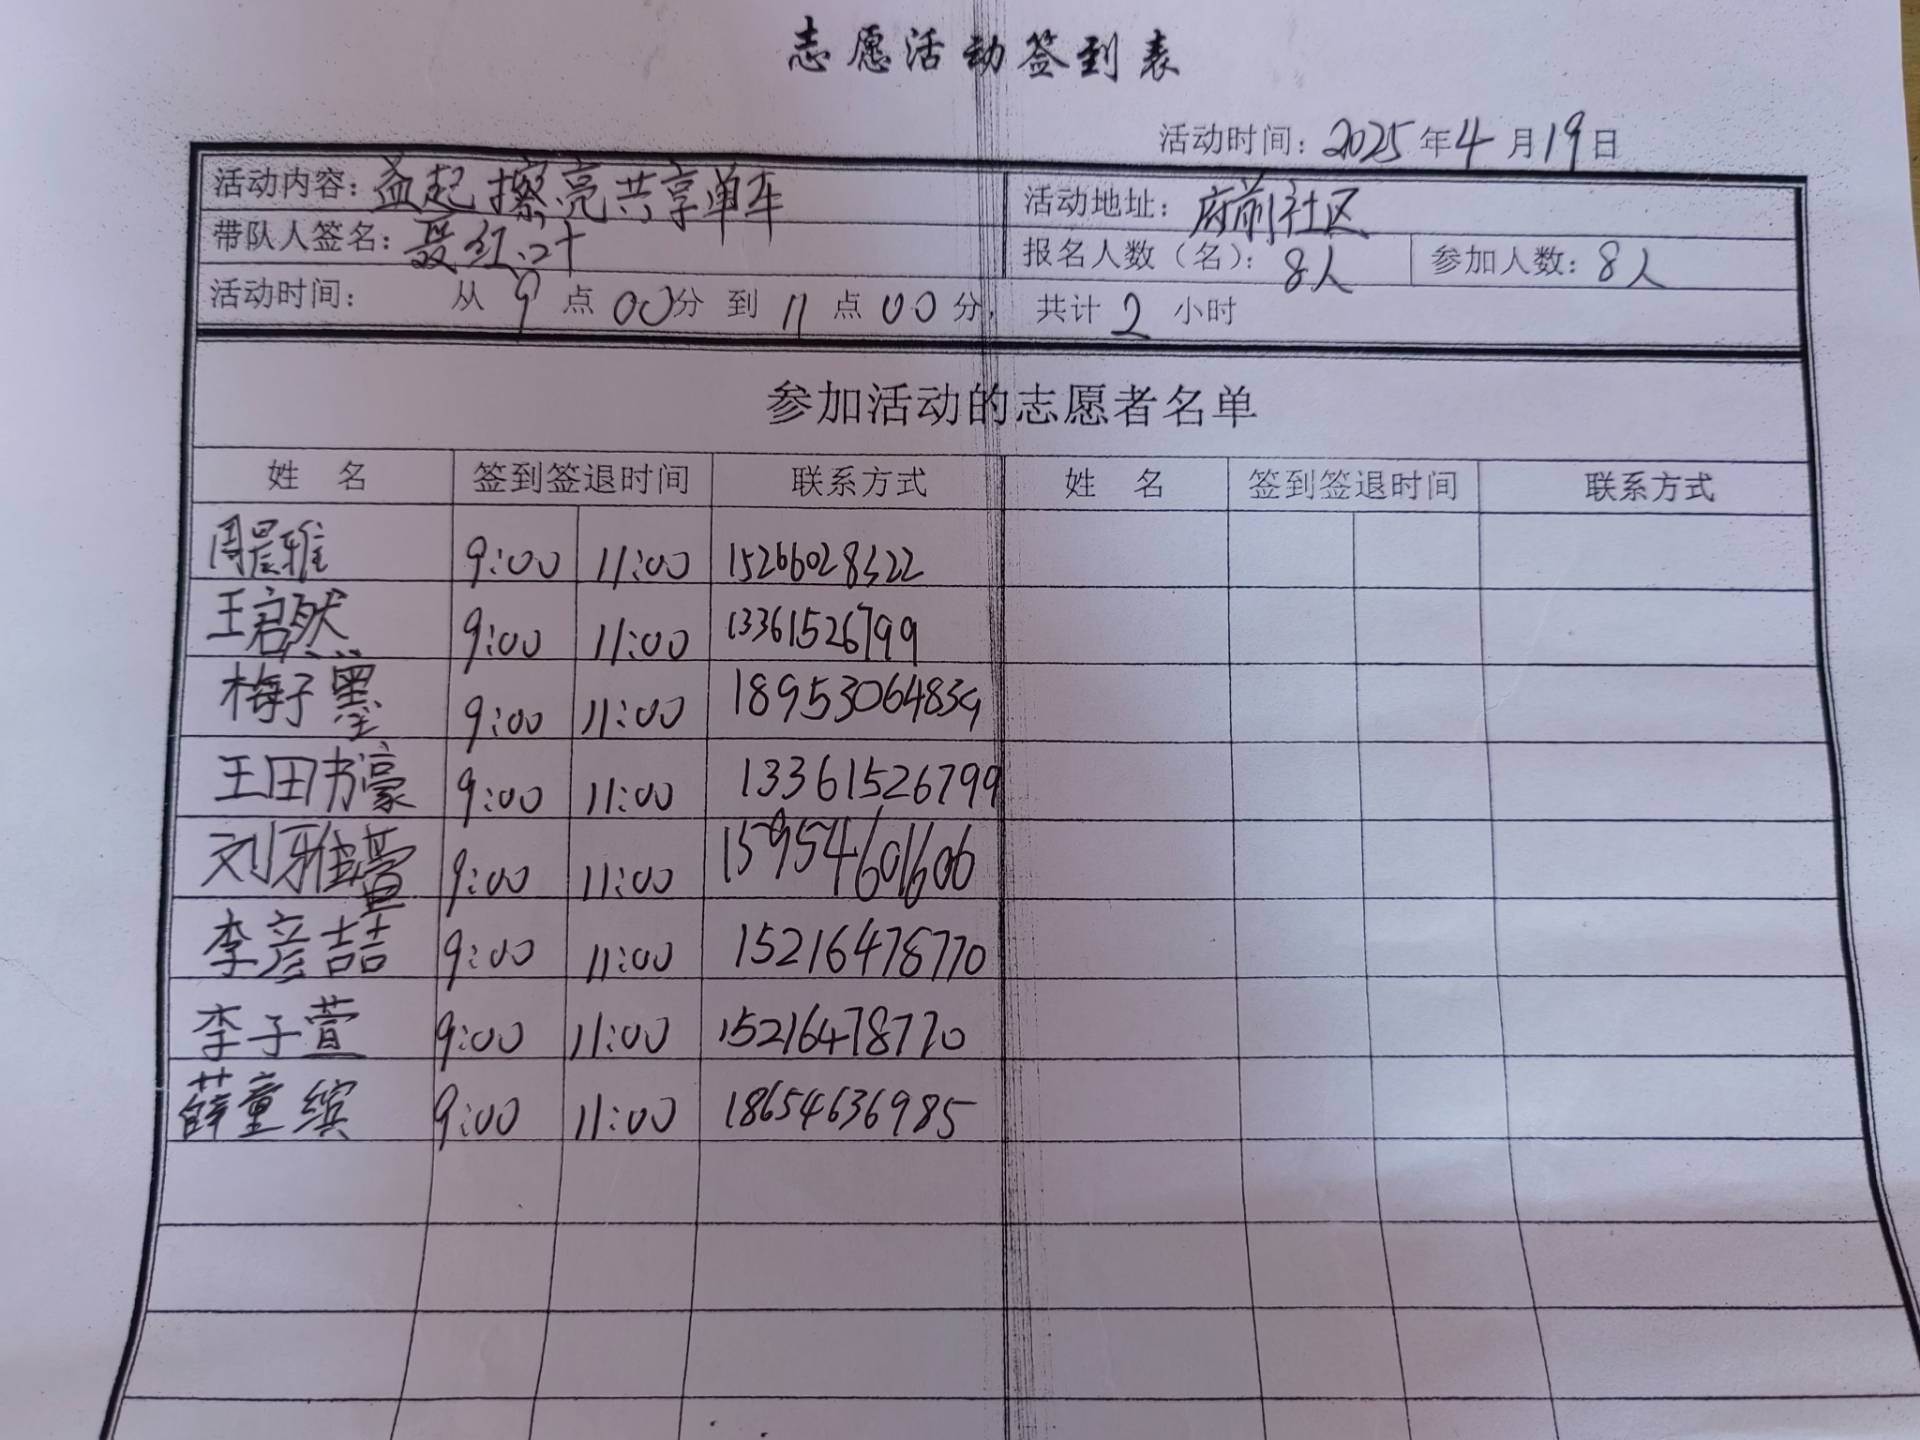 志愿活动签到表
活动时间：2025年4月19日
活动内容：益起擦亮共享单车 活动地址：府前社区
带队人签名：聂红叶 报名人数（名）：8人 参加人数：8人
活动时间： 从9点00分到11点00分， 共计2小时
参加活动的志愿者名单
姓 名 签到签退时间 联系方式 姓 名 签到签退时间 联系方式
周晨雅 9:00 11:00 15266028322
王启然 9:00 11:00 13361526799
梅子墨 9:00 11:00 18953064839
王田书濠 9:00 11:00 13361526799
刘雅萱 9:00 11:00 15954601606
李彦喆 9:00 11:00 15216478770
李子萱 9:00 11:00 15216478770
薛童缤 9:00 11:00 18654636985